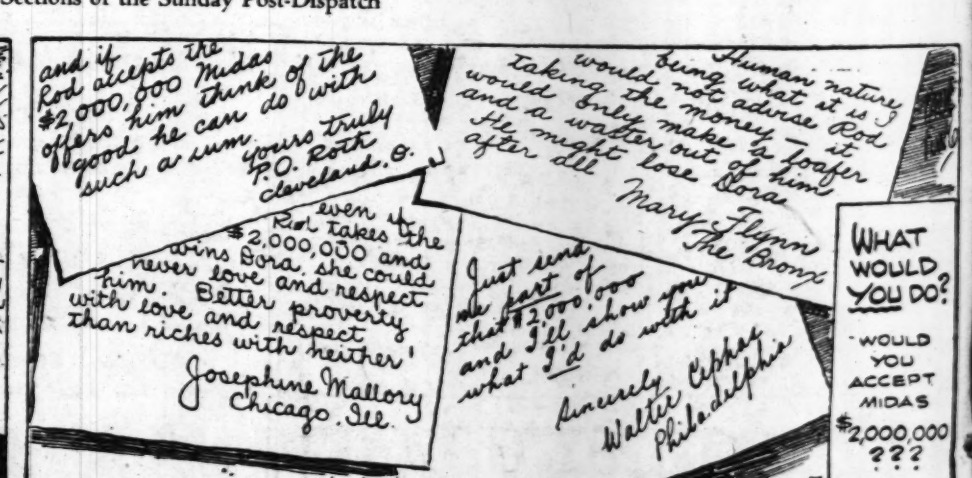 Sections of the Sunday Post-Dispatch
and if
Rod accepts the
$2,000,000 Midas
offers him think of the
good he can do with
such a sum.
yours truly
P.O. Roth
Cleveland, O.
Human nature
being what it is I
would not advise Rod
taking the money — it
would only make a loafer
and a waster out of him
He might lose Dora
after all
Mary Flynn
The Bronx
even if
Rod takes the
$2,000,000 and
wins Dora, she could
never love and respect
him. Better proverty
with love and respect
than riches with neither!
Josephine Mallory
Chicago. Ill.
Just send
me part of
that $2,000,000
and I'll show you
what I'd do with it
Sincerely
Walter Cephas
Philadelphia
WHAT
WOULD
YOU DO?
WOULD
YOU
ACCEPT
MIDAS
$2,000,000
???